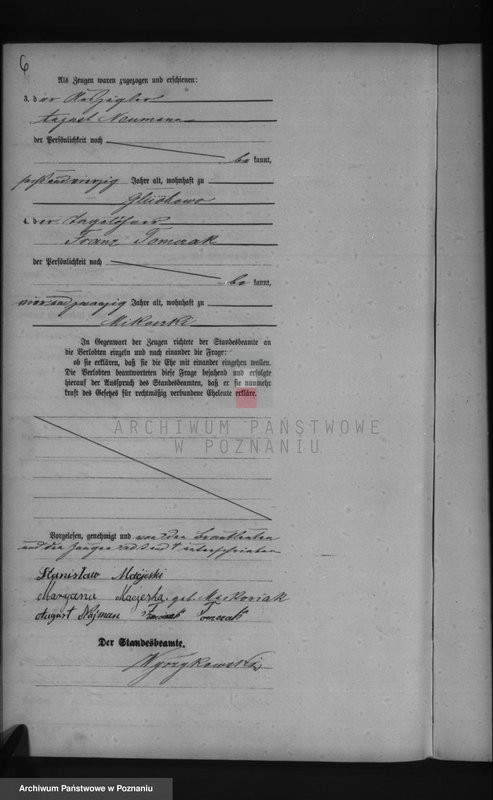 6
Als Zeugen waren zugezogen und erschienen:
3. der
August Neumann
der Persönlichkeit nach
be kannt,
sechsundvierzig Jahre alt, wohnhaft zu
4. der Tagelöhner
Franz Tomczak
der Persönlichkeit nach
be kannt,
vierundzwanzig Jahre alt, wohnhaft zu
In Gegenwart der Zeugen richtete der Standesbeamte an
die Verlobten einzeln und nach einander die Frage:
ob sie erklären, daß sie die Ehe mit einander eingehen wollen.
Die Verlobten beantworteten diese Frage bejahend und erfolgte
hierauf der Ausspruch des Standesbeamten, daß er sie nunmehr
kraft des Gesetzes für rechtmäßig verbundene Eheleute erkläre.
ARCHIWUM PAŃSTWOWE
W POZNANIU
Vorgelesen, genehmigt und von den Brautleuten
und den Zeugen unterschrieben
Stanisław Majeski
Maryanna Majeska geb. Maćkowiak
August Najman Tomczak
Der Standesbeamte.
Archiwum Państwowe w Poznaniu